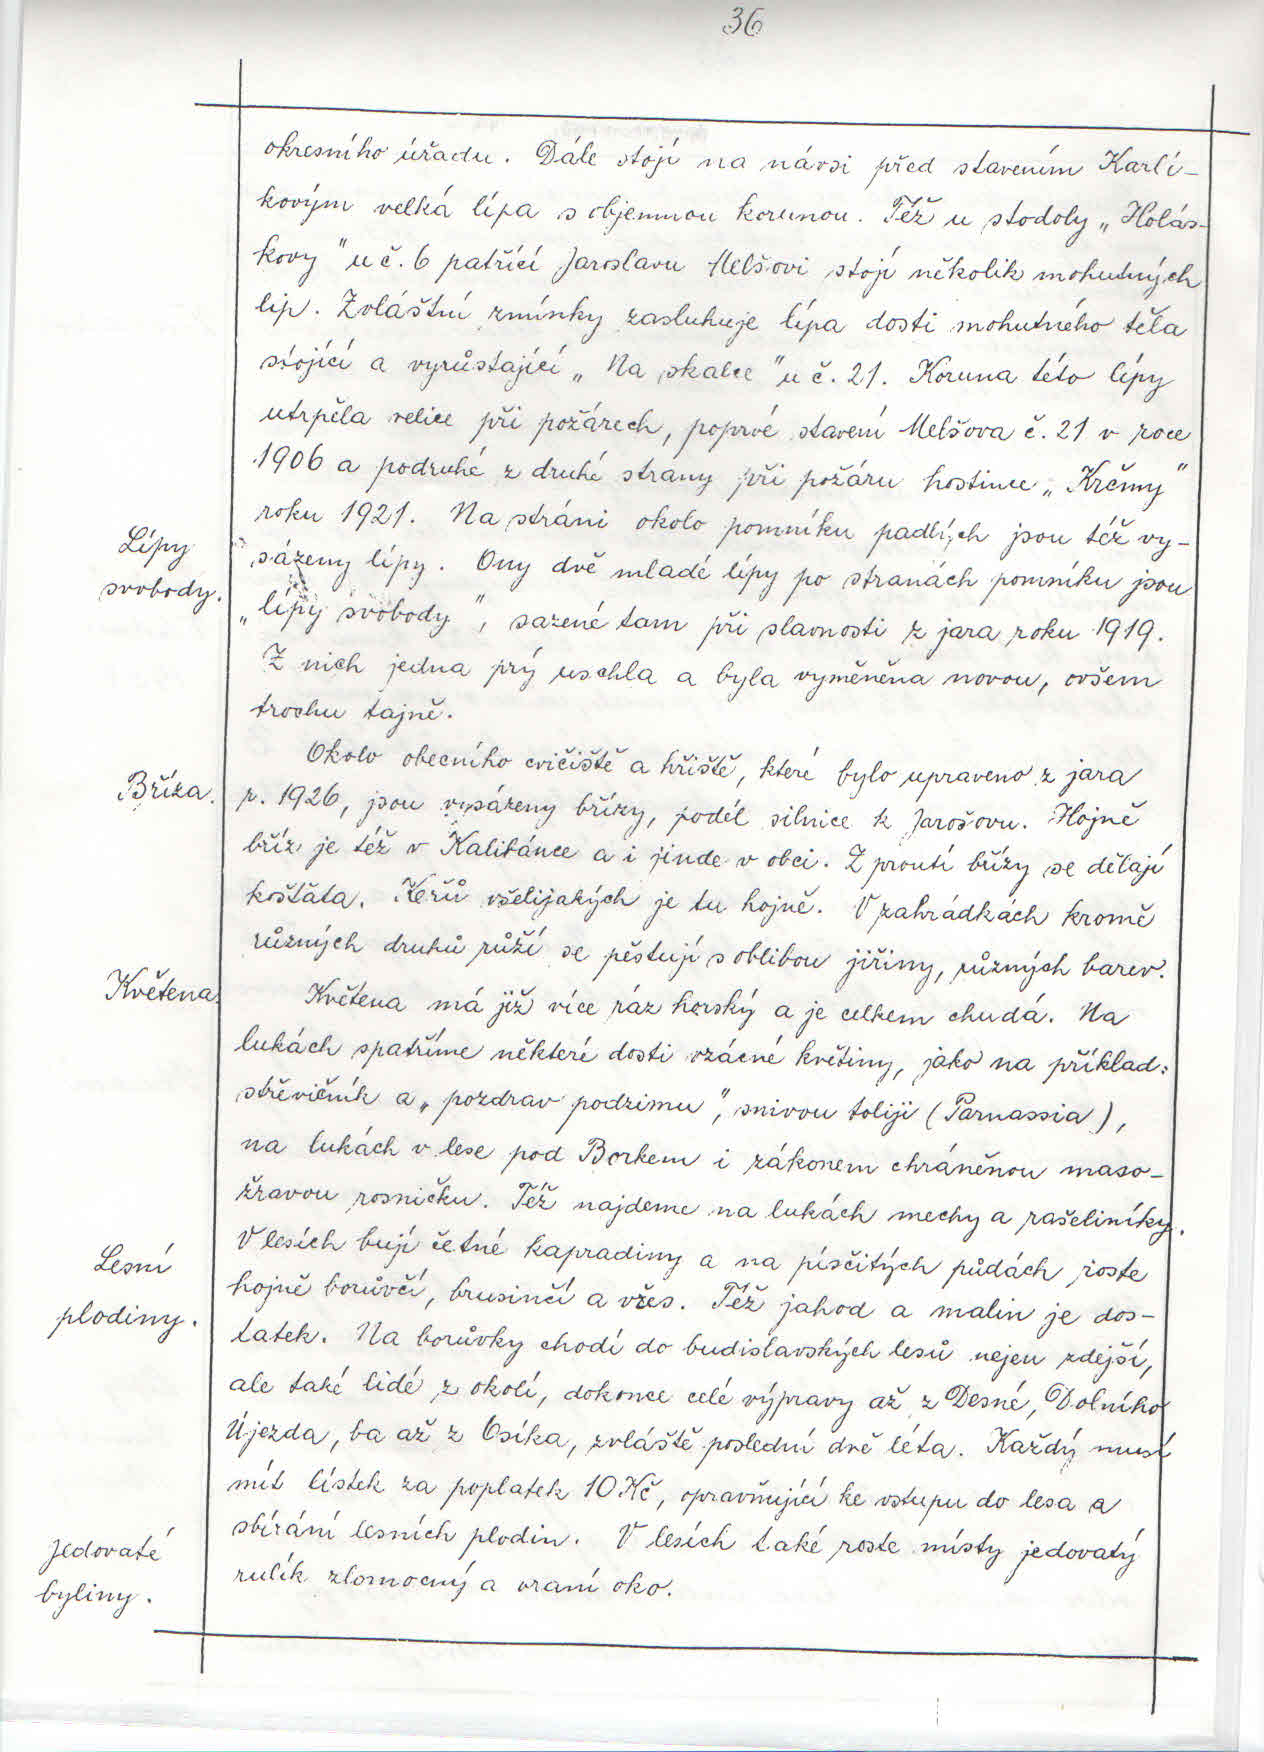 36
okresního úřadu. Dále stojí na návsi před stavením Karlí-
kovým velká lípa s objemnou korunou. Též u stodoly „Holás-
kovy" u č. 6 patřící Jaroslavu Melšovi stojí několik mohutných
lip. Zvláštní zmínky zasluhuje lípa dosti mohutného těla
stojící a vyrůstající „Na skalce" u č. 21. Koruna této lípy
utrpěla velice při požárech, poprvé stavení Melšova č. 21 v roce
1906 a podruhé z druhé strany při požáru hostince „Krčmy"
roku 1921. Na stráni okolo pomníku padlých jsou též vy-
Lípy
svobody.
sázeny lípy. Ony dvě mladé lípy po stranách pomníku jsou
„lípy svobody", sazené tam při slavnosti z jara roku 1919.
Z nich jedna prý uschla a byla vyměněna novou, ovšem
trochu tajně.
Okolo obecního cvičiště a hřiště, které bylo upraveno z jara
Bříza.
r. 1926, jsou vysázeny břízy, podél silnice k Jarošovu. Hojně
bříz je též v Kalibánce a i jinde v obci. Z proutí břízy se dělají
košťata. Keřů všelijakých je tu hojně. V zahrádkách kromě
různých druhů růží se pěstují s oblibou jiřiny, různých barev.
Květena
Květena má již více ráz horský a je celkem chudá. Na
lukách spatříme některé dosti vzácné květiny, jako na příklad:
střevičník a „pozdrav podzimu", snivou toliji (Parnassia),
na lukách v lese pod Borkem i zákonem chráněnou maso-
žravou rosničku. Též najdeme na lukách mechy a rašeliníky.
Lesní
plodiny.
V lesích bují četné kapradiny a na písčitých půdách roste
hojně borůvčí, brusinčí a vřes. Též jahod a malin je dos-
tatek. Na borůvky chodí do budislavských lesů nejen zdejší,
ale také lidé z okolí, dokonce celé výpravy až z Desné, Dolního
Újezda, ba až z Osíka, zvláště poslední dvě léta. Každý musí
mít lístek za poplatek 10 Kč, opravňující ke vstupu do lesa a
sbírání lesních plodin. V lesích také roste místy jedovatý
Jedovaté
byliny.
rulík zlomocný a vraní oko.